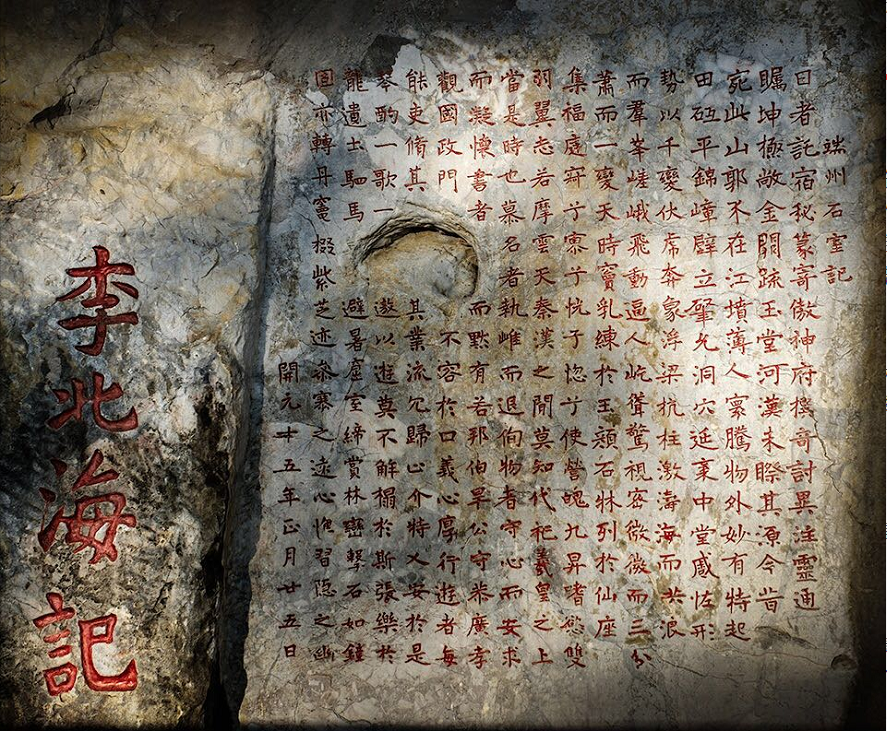 端州石室記
日者託宿秘篆寄傲神府奇討異注靈通
矚坤極敞金闕疏玉堂河漢未睽其源今旹
宛此山郭不在江墳薄人寰騰物外妙有特起
田砥平錦嶂壁立肇允洞穴延袤中堂感怪形
勢以千變伏虎奔象浮梁抗柱激海而洪浪
而羣峯嵯峨飛動逼人屹聳驚視密微微而三分
蕭而一變天時竇乳練於玉顏石牀列於仙座
集福庭寂兮寥兮恍兮惚兮使營魄九昇嗜慾雙
羽翼志若摩雲天秦漢之間莫知代祀羲皇之上
當是時也慕名者執雌而退徇物者守心而安求
而凝懷書者而默有若邦伯畢公守恭廣孝
觀國政門不容於口義心厚行遊者每
能吏脩其其業流冗歸止介特乂安於是
琴酌一歌一遨以遊莫不解榻於斯張樂於
龍遺土駟馬避暑虛室締賞林巒擊石如鐘
固亦轉丹竈掇紫芝迹參寥之遠心憔習隱之幽
開元十五年正月廿五日
李北海記